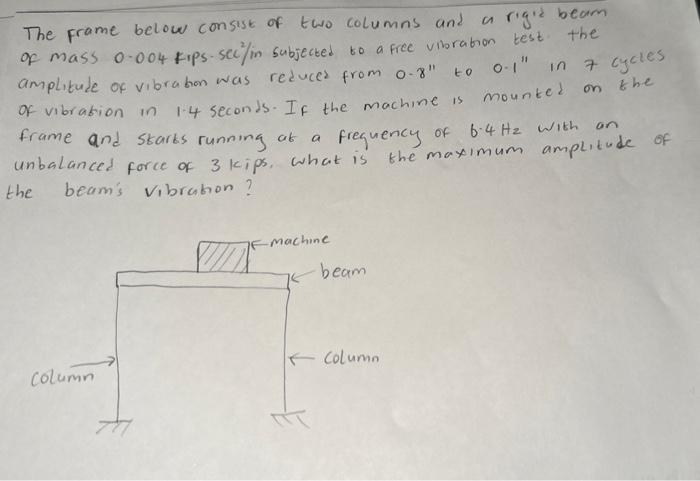 The frame below consist of two columns and a rigid beam
of mass 0.004 kips.sec²/in subjected to a free vibration test. the
amplitude of vibration was reduced from 0.8" to 0.1" in 7 cycles
of vibration in 1.4 seconds. If the machine is mounted on the
frame and starts running at a frequency of 6.4 Hz with an
unbalanced force of 3 kips. what is the maximum amplitude of
the beam's vibration?
machine
beam
column
column